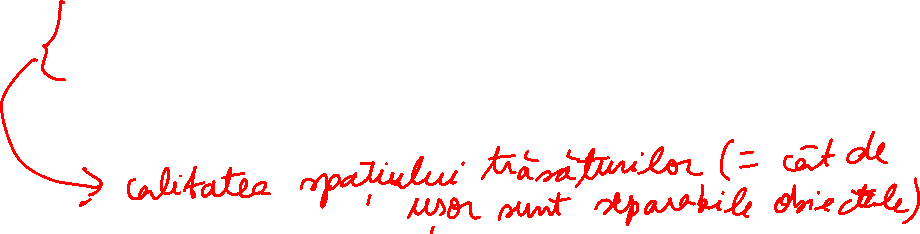 calitatea spațiului trăsăturilor (= cât de
ușor sunt separabile obiectele)